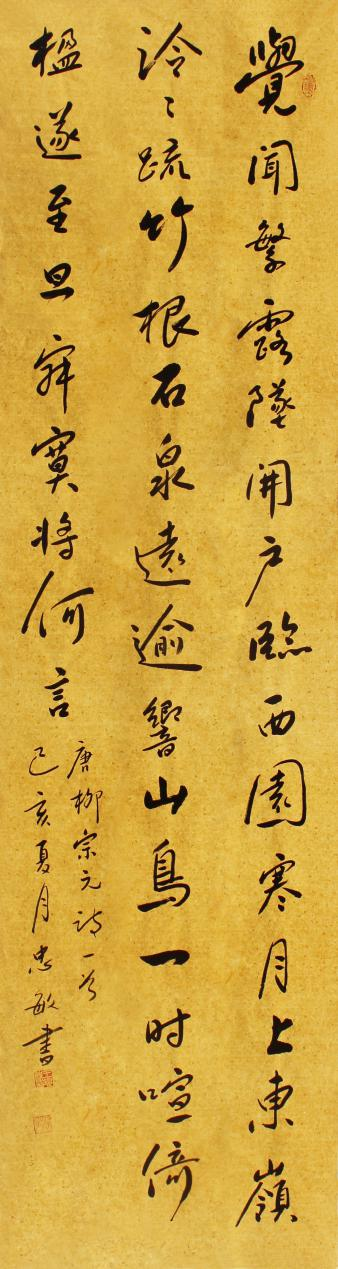 覺聞繁露墜開戶臨西園寒月上東嶺
泠〻疏竹根石泉遠逾響山鳥一时喧倚
楹遂至旦寂寞将何言
唐柳宗元詩一首
己亥夏月忠敏書